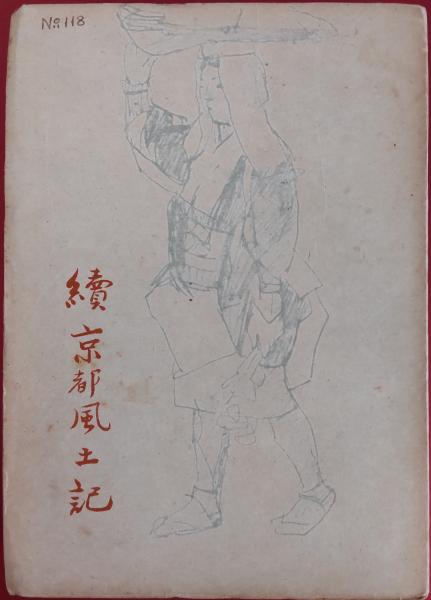 No 118
續京都風土記